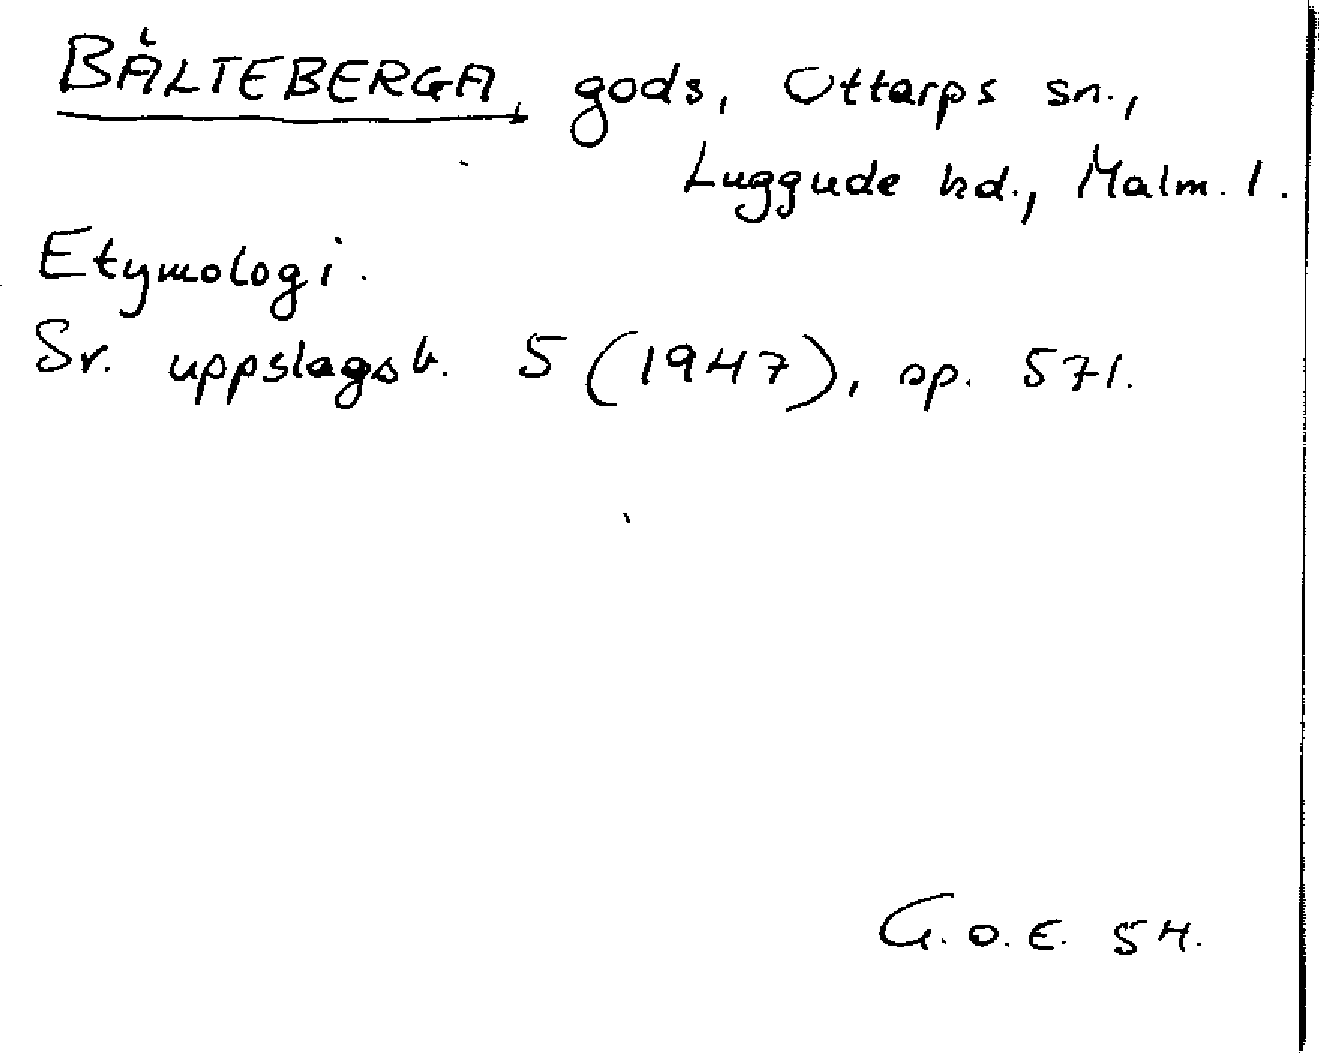 BÅLTEBERGA, gods, Ottarps sn.,
Luggude hd., Malm. l.
Etymologi.
Sv. uppslagsb. 5 (1947), sp. 571.
G.O.E. 54.